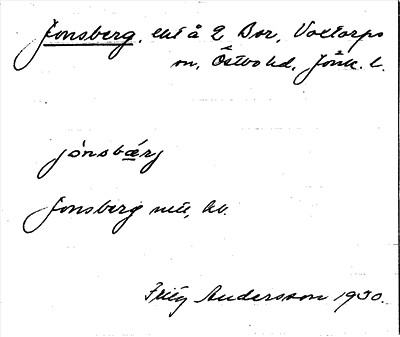 Jonsberg, lht å 2 Bor, Voxtorps
sn, Östbo hd, Jönk. l.
jònsbærj
Jonsberg
Fritz Andersson 1930.